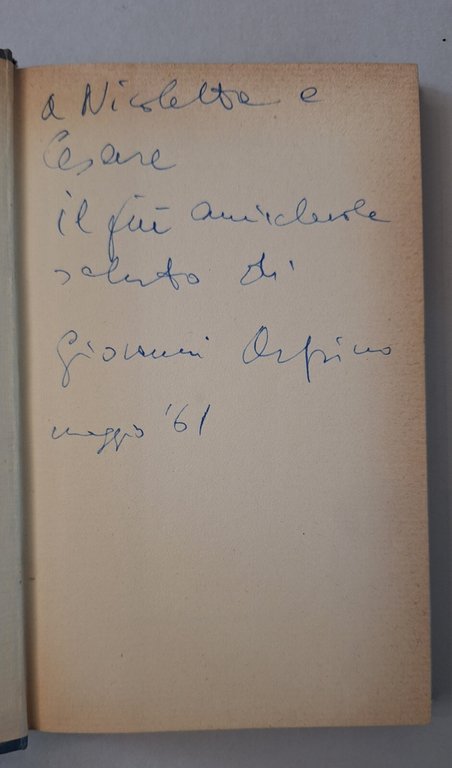 a Nicoletta e
Cesare
il più amichevole
saluto di
Giovanni Arpino
maggio '61